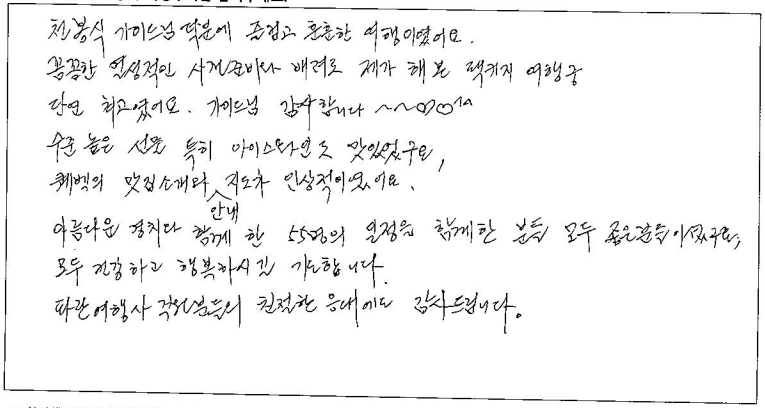 천봉식 가이드님 덕분에 즐겁고 훈훈한 여행이였어요.
꼼꼼한 열성적인 사전준비와 배려로 제가 해 본 팩키지 여행중
단연 최고였어요. 가이드님 감사합니다 ~~
수준 높은 선물 특히 아이스와인도 맛있었구요,
퀘벡의 맛집소개와 안내 지도차 인상적이였어요.
아름다운 경치다 함께 한 55명의 일정을 함께한 분들 모두 좋은분들이셨구요,
모두 건강하고 행복하시길 기도합니다.
파란여행사 직원분들의 친절한 응대에도 감사드립니다.